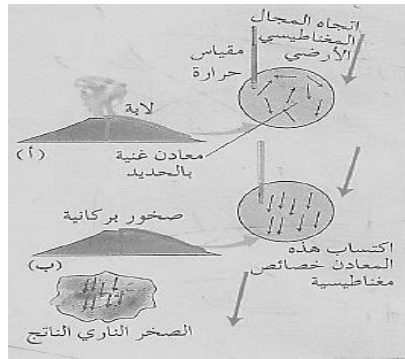 اتجاه المجال
المغناطيسي
الأرضي
مقياس
حرارة
لابة
معادن غنية
بالحديد
(أ)
صخور بركانية
اكتساب هذه
المعادن خصائص
مغناطيسية
(ب)
الصخر الناري الناتج